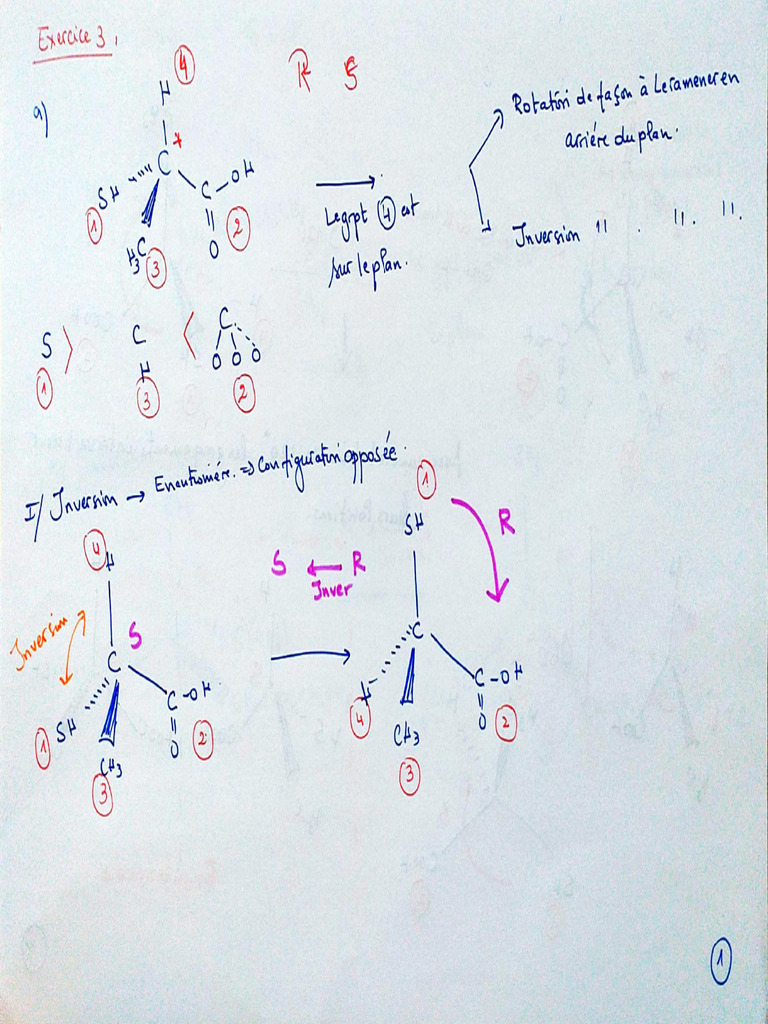 Exercice 3.
a)
4
R S
H
C *
SH
C-OH
O
1
2
H3C
3
Le grpt 4 est
sur le plan.
Rotation de façon à le ramener en
arrière du plan.
Inversion " . ". ".
S > C < C
H O O O
1 3 2
I/ Inversion → Enantiomère. => Configuration opposée.
4
H
Inversion
S
C
SH
C-OH
O
1
2
CH3
3
S ← R
Inver
1
SH
R
C
H
C-OH
O
4
2
CH3
3
1